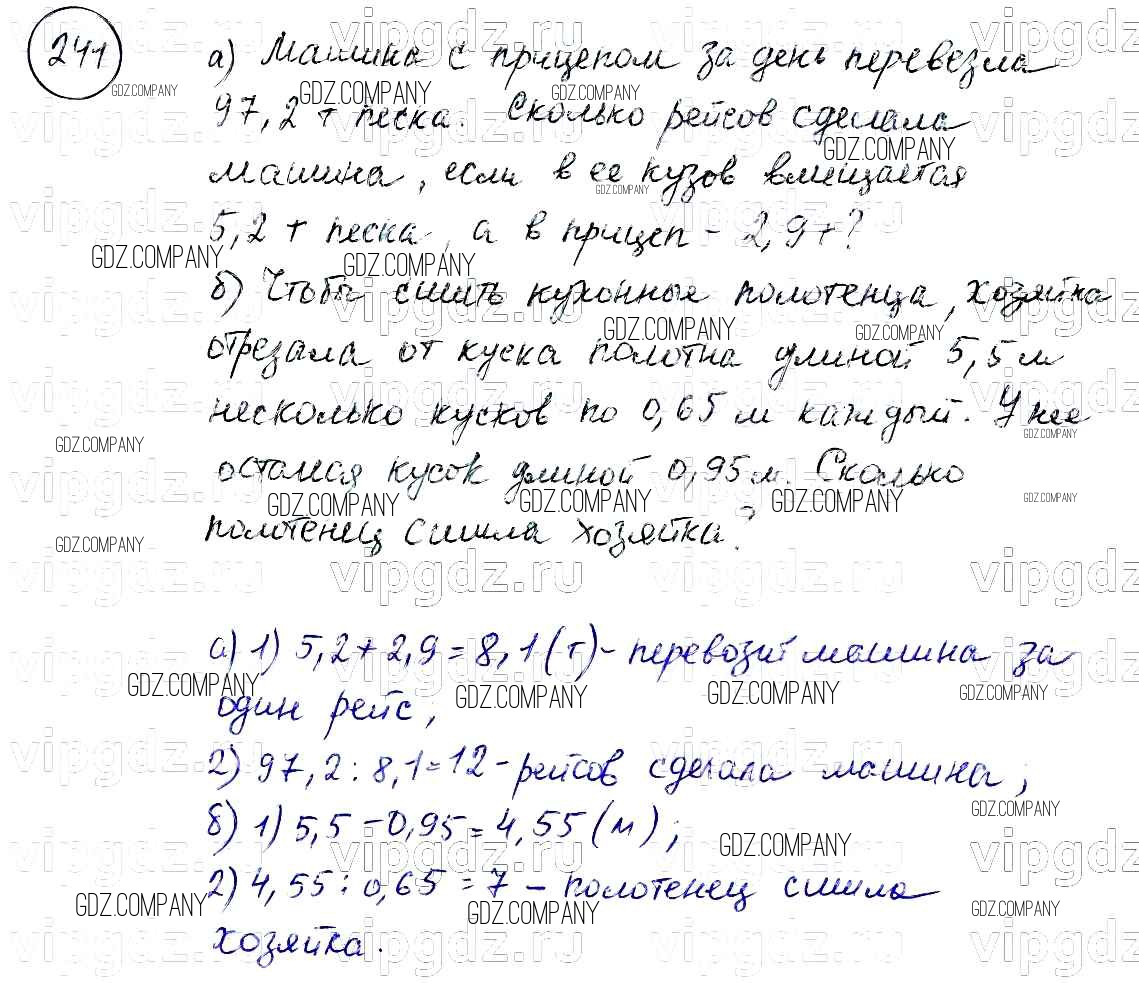 241
а) Машина с прицепом за день перевезла
97,2 т песка. Сколько рейсов сделала
машина, если в ее кузов вмещается
5,2 т песка, а в прицеп - 2,9 т?
б) Чтобы сшить кухонные полотенца, хозяйка
отрезала от куска полотна длиной 5,5 м
несколько кусков по 0,65 м каждый. У нее
остался кусок длиной 0,95 м. Сколько
полотенец сшила хозяйка?
а) 1) 5,2 + 2,9 = 8,1 (т) - перевозит машина за
один рейс;
2) 97,2 : 8,1 = 12 - рейсов сделала машина;
б) 1) 5,5 - 0,95 = 4,55 (м);
2) 4,55 : 0,65 = 7 - полотенец сшила
хозяйка.
vipgdz.ru
GDZ.COMPANY